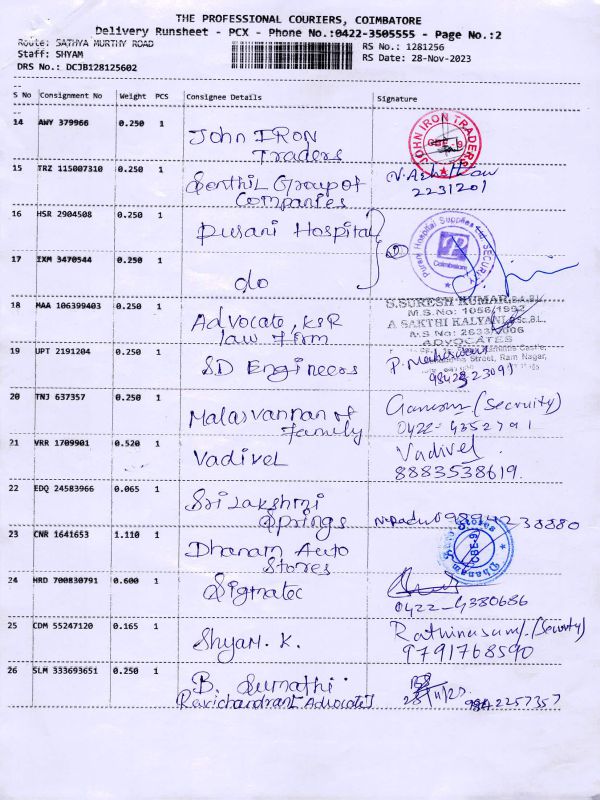 THE PROFESSIONAL COURIERS, COIMBATORE
Delivery Runsheet - PCX - Phone No.:0422-3505555 - Page No.:2
Route: SATHYA MURTHY ROAD
RS No.: 1281256
Staff: SHYAM
RS Date: 28-Nov-2023
DRS No.: DCJB128125602
S No Consignment No Weight PCS Consignee Details Signature
14 AWY 379966 0.250 1 John IRON
Traders
JOHN IRON TRADERS
CBE-9
15 TRZ 115007310 0.250 1 Senthil Group of
Companies
2231201
16 HSR 2904508 0.250 1 Purani Hospital
Purani Hospital Supplies
SECURITY
Coimbatore
17 IXM 3470544 0.250 1 do
18 MAA 106399403 0.250 1 Advocate, KSR
law Firm
S.SURESH KUMAR, B.A.,B.L.
M.S.No: 1056/1992
A SAKTHI KALYANI B.Sc.,B.L.
M.S No: 2633/2006
ADVOCATES
Street, Ram Nagar,
19 UPT 2191204 0.250 1 SD Engineers
20 TNJ 637357 0.250 1 Malarvannan &
Family
Ganesan (Secruity)
0422-4352791
21 VRR 1709901 0.520 1 Vadivel
Vadivel
8883538619.
22 EDQ 24583966 0.065 1 Sri Lakshmi
Springs
23 CNR 1641653 1.110 1 Dhanam Auto
Stores
Dhanam Auto Stores
CBE-9
24 HRD 700830791 0.600 1 Sigmatec
0422-4380686
25 CDM 55247120 0.165 1 Shyam. K.
Rathinasamy. (Security)
9791768590
26 SLM 333693651 0.250 1 B. Sumathi
Ravichandran [Advocate]
28/11/23.
9842257357